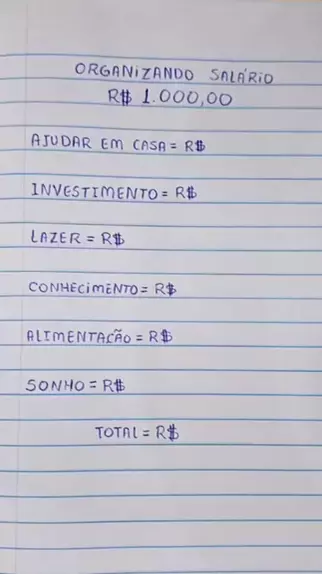 ORGANIZANDO SALÁRIO
R$ 1.000,00
AJUDAR EM CASA = R$
INVESTIMENTO = R$
LAZER = R$
CONHECIMENTO = R$
ALIMENTAÇÃO = R$
SONHO = R$
TOTAL = R$